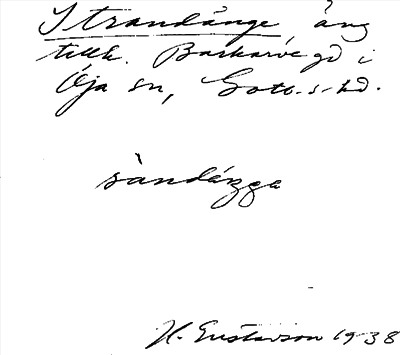 Strandänge, äng
tillh. Barkarve gd i
Öja sn, Gotl. s. hd.
sàndä́ŋgə
H. Gustavson 1938